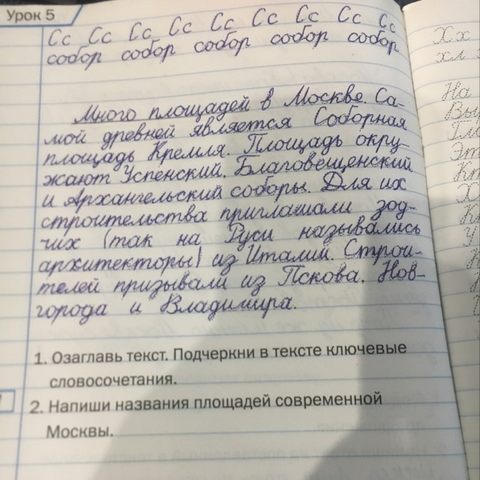 Урок 5
Сс Сс Сс Сс Сс Сс Сс Сс Сс
собор собор собор собор собор
Много площадей в Москве. Са-
мой древней является Соборная
площадь Кремля. Площадь окру-
жают Успенский, Благовещенский
и Архангельский соборы. Для их
строительства приглашали зод-
чих (так на Руси назывались
архитекторы) из Италии. Строи-
телей призывали из Пскова. Нов-
города и Владимира.
1. Озаглавь текст. Подчеркни в тексте ключевые
словосочетания.
2. Напиши названия площадей современной
Москвы.
Хх
хл
На
Вы
Эт